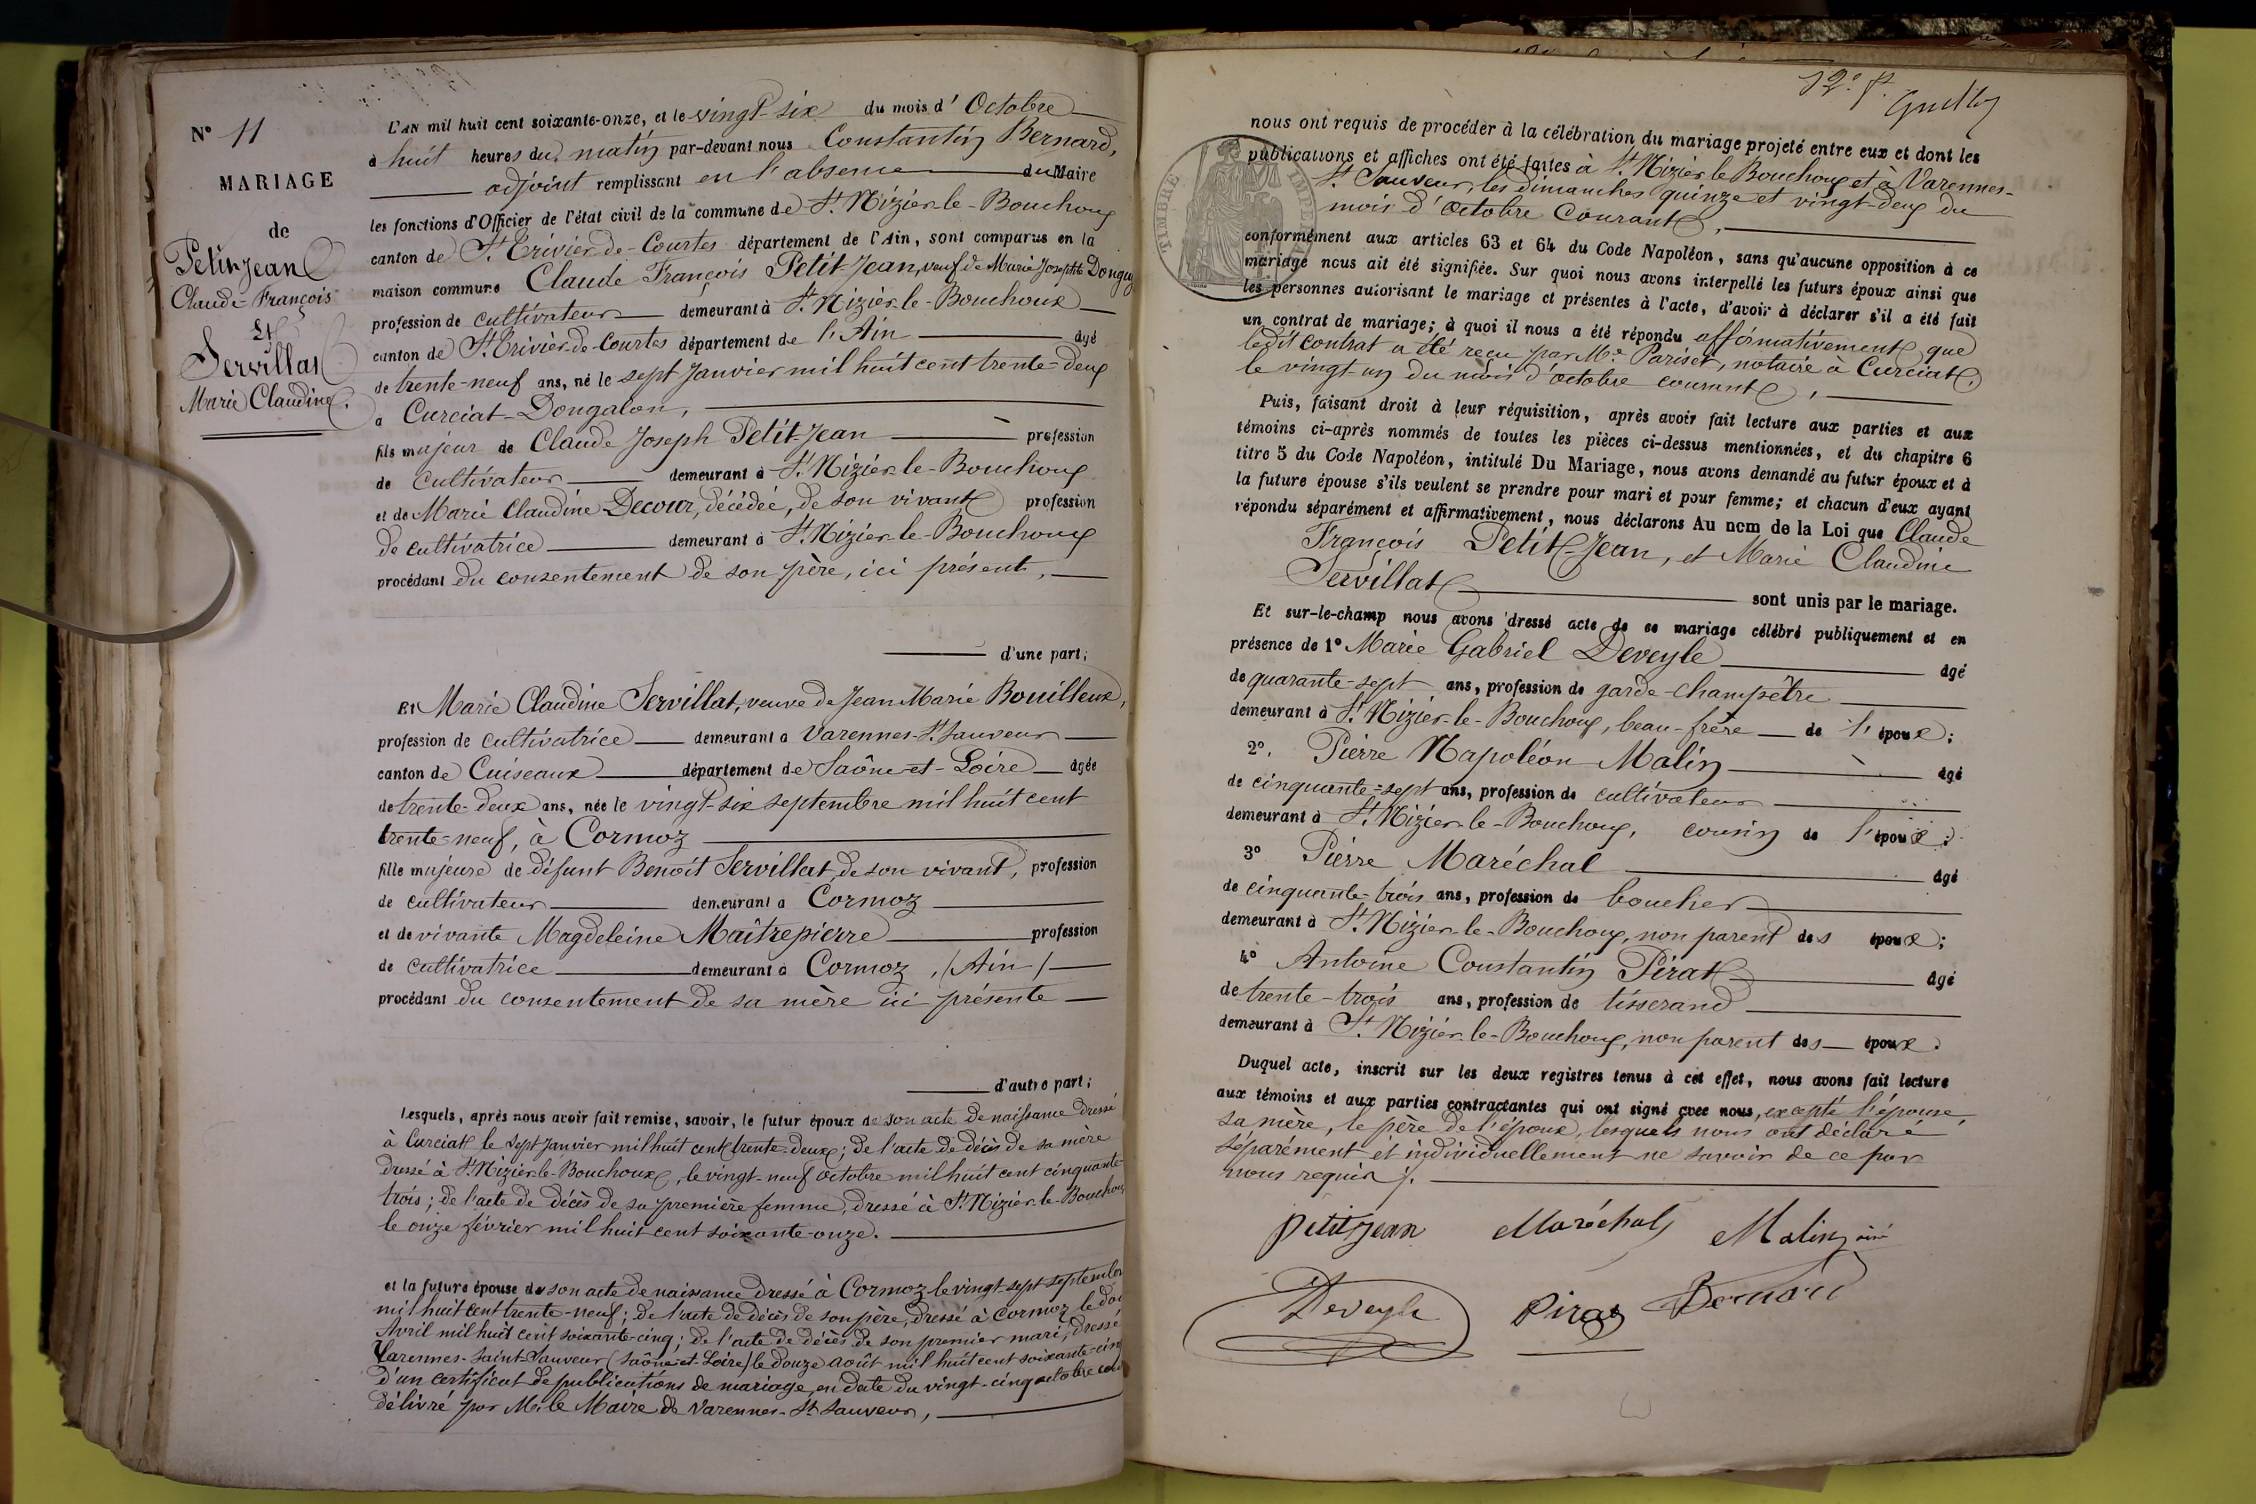 N° 11
MARIAGE
de
Petit-Jean
Claude-François
Et
Servillat
Marie Claudine.
L'AN mil huit cent soixante-onze, et le vingt-six du mois d'Octobre
à huit heures du matin par-devant nous Constantin Bernard,
adjoint remplissant en l'absence du Maire
les fonctions d'Officier de l'état civil de la commune de St Nizier-le-Bouchoux
canton de St Trivier-de-Courtes département de l'Ain, sont comparus en la
maison commune Claude François Petit-Jean, veuf de Marie Josephte Donguy
profession de cultivateur demeurant à St Nizier-le-Bouchoux
canton de St Trivier-de-Courtes département de l'Ain âgé
de trente-neuf ans, né le sept Janvier mil huit cent trente-deux
a Curciat-Dongalon,
fils majeur de Claude Joseph Petit-Jean profession
de cultivateur demeurant à St Nizier-le-Bouchoux
et de Marie Claudine Decour, décédée, de son vivant profession
de cultivatrice demeurant à St Nizier-le-Bouchoux
procédant du consentement de son père, ici présent,
d'une part;
Et Marie Claudine Servillat, veuve de Jean Marie Bouilleux,
profession de cultivatrice demeurant a Varennes-St Sauveur
canton de Cuiseaux département de Saône-et-Loire âgée
de trente-deux ans, née le vingt-six septembre mil huit cent
trente-neuf, à Cormoz
fille majeure de défunt Benoît Servillat, de son vivant, profession
de cultivateur demeurant a Cormoz
et de vivante Magdeleine Maîtrepierre profession
de cultivatrice demeurant à Cormoz, (Ain)
procédant du consentement de sa mère ici présente
d'autre part;
Lesquels, après nous avoir fait remise, savoir, le futur époux de son acte de naissance dressé
à Curciat le sept Janvier mil huit cent trente-deux; de l'acte de décès de sa mère
dressé à St Nizier-le-Bouchoux, le vingt-neuf octobre mil huit cent cinquante-
trois; de l'acte de décès de sa première femme, dressé à St Nizier-le-Bouchoux
le onze février mil huit cent soixante-onze.
et la future épouse de son acte de naissance dressé à Cormoz le vingt-sept septembre
mil huit cent trente-neuf; de l'acte de décès de son père, dressé à Cormoz le
Avril mil huit cent soixante-cinq; de l'acte de décès de son premier mari, dressé
Varennes-Saint-Sauveur (Saône-et-Loire) le douze août mil huit cent soixante-cinq
d'un certificat de publications de mariage, en date du vingt-cinq octobre
délivré par Mr le Maire de Varennes-St Sauveur,
12e ft.
TIMBRE IMPE
nous ont requis de procéder à la célébration du mariage projeté entre eux et dont les
publications et affiches ont été faites à St Nizier le Bouchoux et à Varennes-
St Sauveur, les dimanches quinze et vingt-deux du
mois d'octobre courant,
conformément aux articles 63 et 64 du Code Napoléon, sans qu'aucune opposition à ce
mariage nous ait été signifiée. Sur quoi nous avons interpellé les futurs époux ainsi que
les personnes autorisant le mariage et présentes à l'acte, d'avoir à déclarer s'il a été fait
un contrat de mariage; à quoi il nous a été répondu affirmativement que
ledit contrat a été reçu par Me Pariset, notaire à Curciat,
le vingt-un du mois d'octobre courant,
Puis, faisant droit à leur réquisition, après avoir fait lecture aux parties et aux
témoins ci-après nommés de toutes les pièces ci-dessus mentionnées, et du chapitre 6
titre 5 du Code Napoléon, intitulé Du Mariage, nous avons demandé au futur époux et à
la future épouse s'ils veulent se prendre pour mari et pour femme; et chacun d'eux ayant
répondu séparément et affirmativement, nous déclarons Au nom de la Loi que Claude
François Petit-Jean, et Marie Claudine
Servillat
sont unis par le mariage.
Et sur-le-champ nous avons dressé acte de ce mariage célébré publiquement et en
présence de 1° Marie Gabriel Deveyle âgé
de quarante-sept ans, profession de garde-champêtre
demeurant à St Nizier-le-Bouchoux, beau-frère de l'époux;
2°. Pierre Napoléon Malin âgé
de cinquante-sept ans, profession de cultivateur
demeurant à St Nizier-le-Bouchoux, cousin de l'époux;
3° Pierre Maréchal âgé
de cinquante-trois ans, profession de boucher
demeurant à St Nizier-le-Bouchoux, non parent des époux;
4° Antoine Constantin Pirat âgé
de trente-trois ans, profession de tisserand
demeurant à St Nizier-le-Bouchoux, non parent des époux.
Duquel acte, inscrit sur les deux registres tenus à cet effet, nous avons fait lecture
aux témoins et aux parties contractantes qui ont signé avec nous, excepté l'épouse,
sa mère, le père de l'époux, lesquels nous ont déclaré
séparément et individuellement ne savoir de ce par
nous requis.
petitjean Maréchal Malin ainé
Deveyle Pirat Bernard